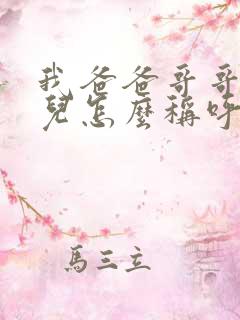 我爸爸哥哥
兒怎麼稱呼
馬三立